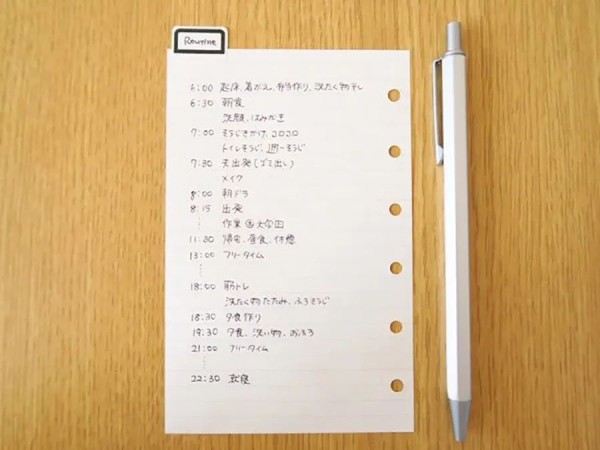 Routine
6:00 起床、着がえ、弁当作り、洗たく物干し
6:30 朝食
洗顔、はみがき
7:00 そうじきかけ、2020
トイレそうじ、週一そうじ
7:30 夫出発(ゴミ出し)
メイク
8:00 朝ドラ
8:15 出発
作業@
11:30 帰宅、昼食、休憩
13:00 フリータイム
18:00 筋トレ
洗たく物たたみ、ふろそうじ
18:30 夕食作り
19:30 夕食、洗い物、おふろ
21:00 フリータイム
22:30 就寝